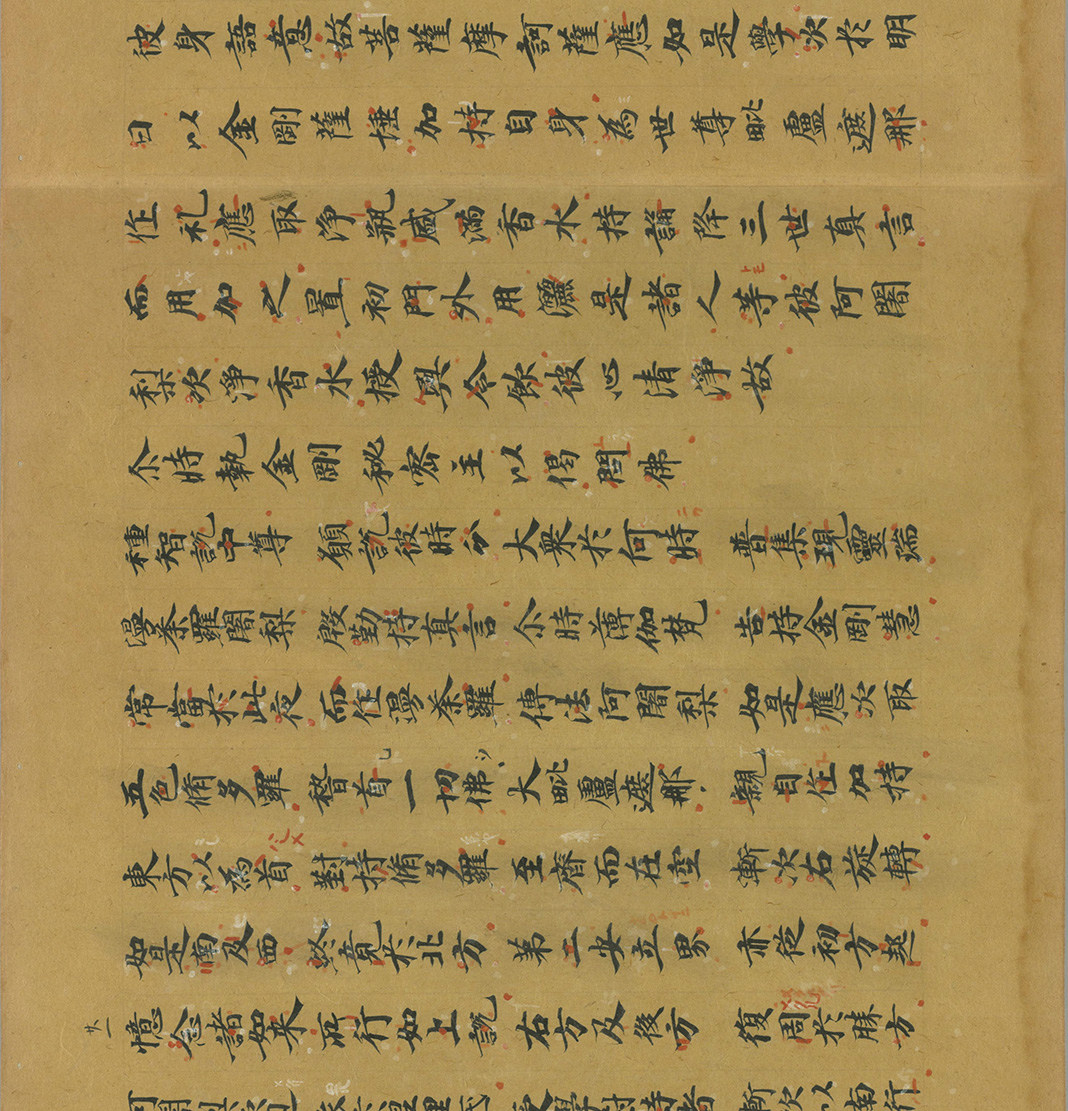 彼身語意故菩薩摩訶薩應如是學次於明
日以金剛薩埵加持自身為世尊毗盧遮那
作礼應取淨瓶盛滿香水持誦降三世真言
而用加之置初門外用灑是諸人等彼阿闍
梨次淨香水授與令飲彼心清淨故
尒時執金剛秘密主以偈問佛
種智說中尊 願說彼時分 大衆於何時 普集現靈瑞
漫荼羅闍梨 慇勤持真言 尒時薄伽梵 告持金剛慧
常當於此夜 而作漫荼羅 傳法阿闍梨 如是應次取
五色脩多羅 稽首一切佛 大毗盧遮那 親自作加持
東方以為首 對持脩多羅 至齊而在空 漸次右旋轉
如是南及西 終竟於北方 第二安立界 亦從初方起
憶念諸如來 所行如上說 右方及後方 復周於勝方
漸次以南行
廿一